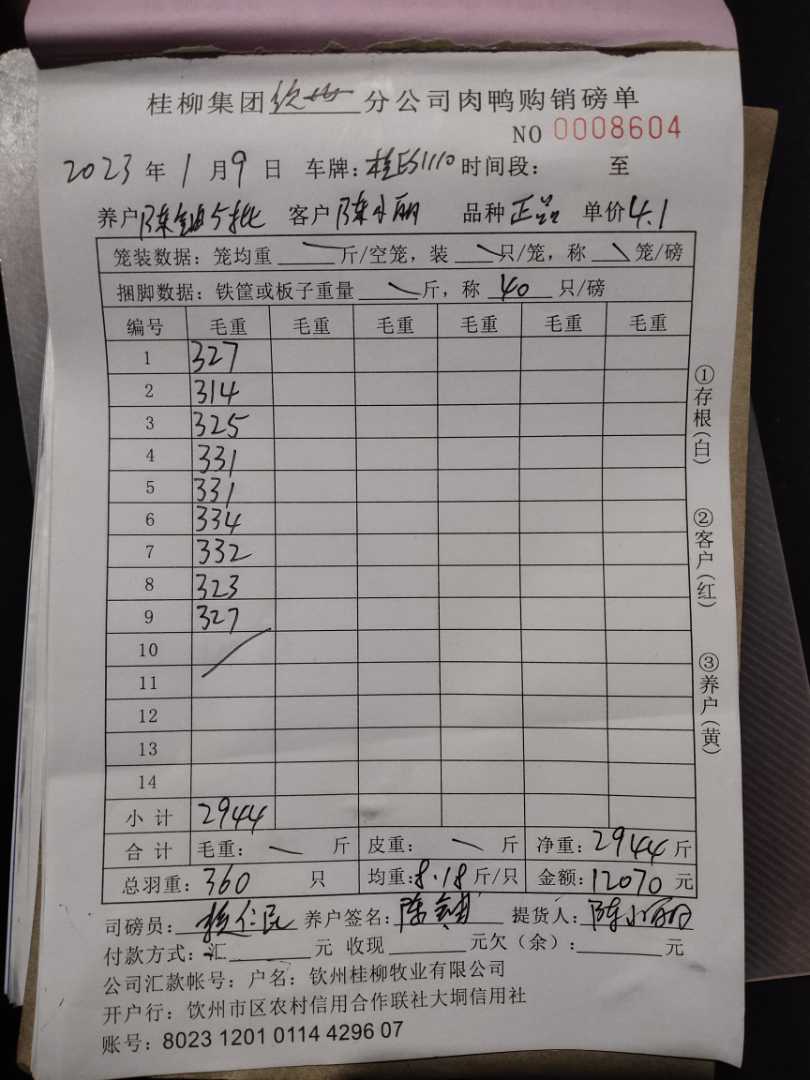 桂柳集团钦州分公司肉鸭购销磅单
NO 0008604
2023年1月9日 车牌:桂 1110 时间段: 至
养户 陈 5批 客户 陈小丽 品种 正品 单价 4.1
笼装数据: 笼均重 斤/空笼, 装 只/笼, 称 笼/磅
捆脚数据: 铁筐或板子重量 斤, 称 40 只/磅
编号 毛重 毛重 毛重 毛重 毛重 毛重
1 327
2 314
3 325
4 331
5 331
6 334
7 332
8 323
9 327
10
11
12
13
14
小计 2944
合计 毛重: 斤 皮重: 斤 净重: 2944 斤
总羽重: 360 只 均重: 8.18 斤/只 金额: 12070 元
司磅员: 养户签名: 陈 提货人: 陈小丽
付款方式: 汇 元 收现 元欠(余): 元
公司汇款帐号: 户名: 钦州桂柳牧业有限公司
开户行: 钦州市区农村信用合作联社大垌信用社
账号: 8023 1201 0114 4296 07
①存根(白)
②客户(红)
③养户(黄)